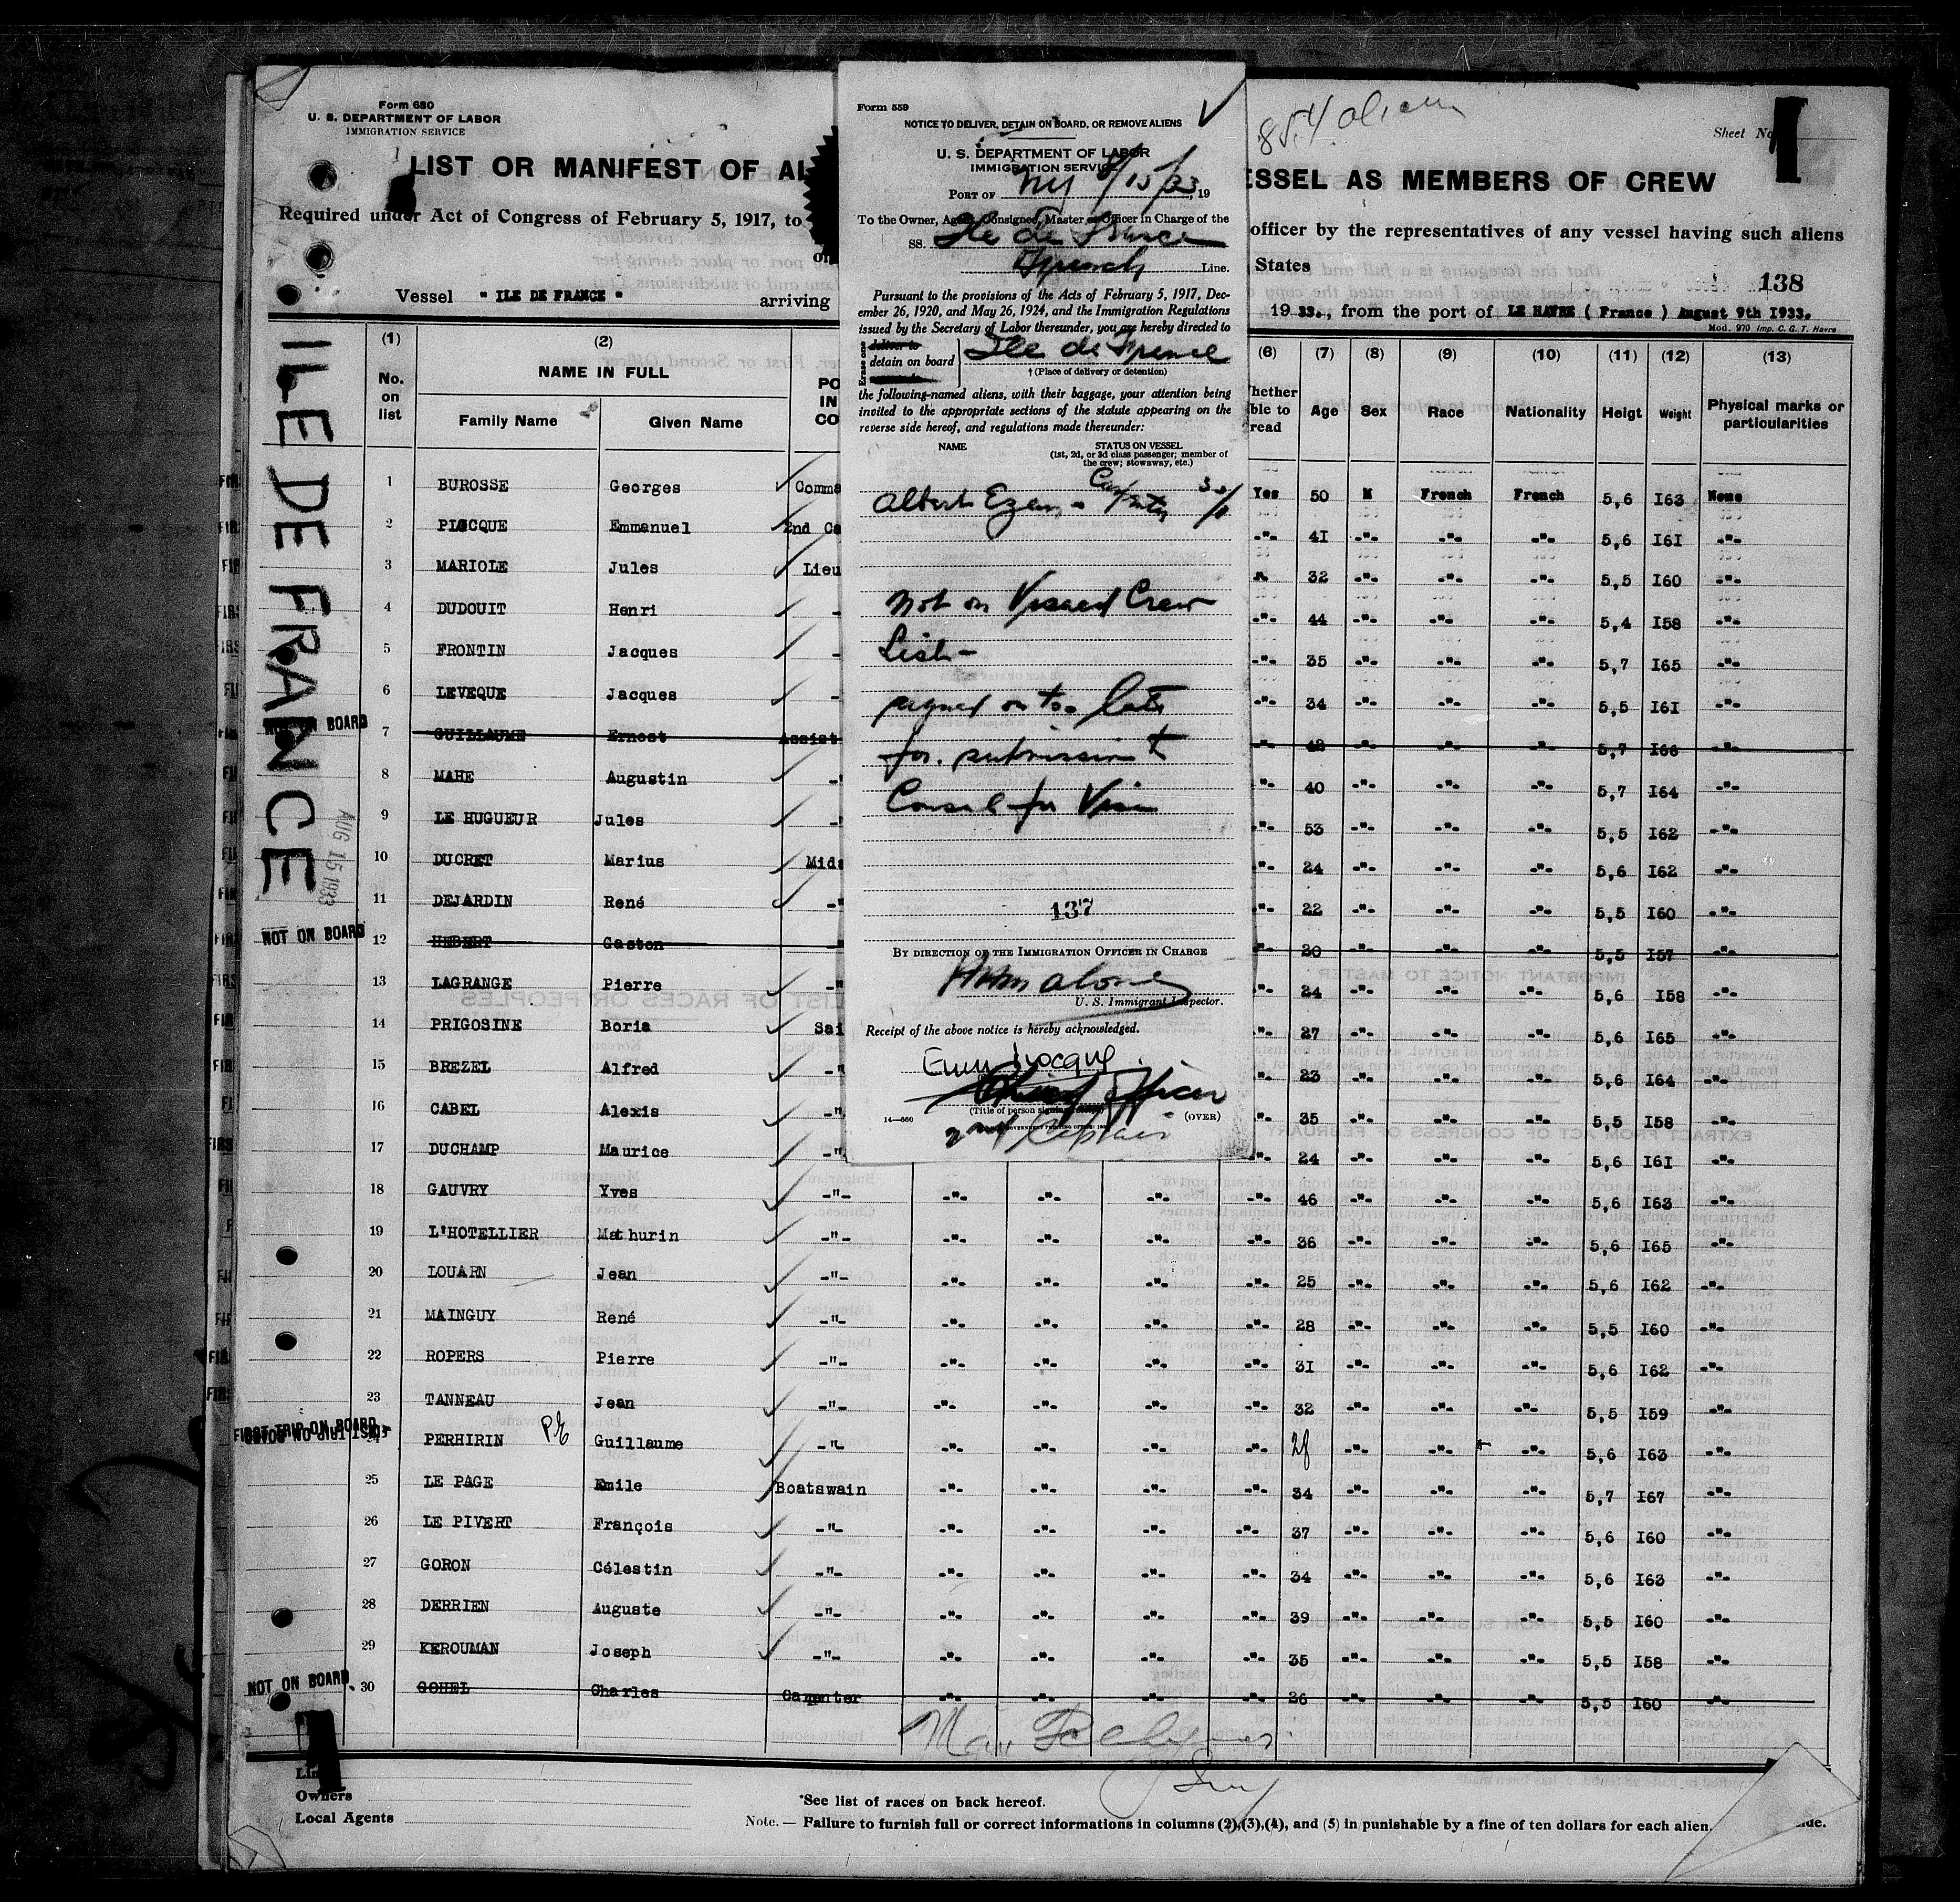 Form 680
U. S. DEPARTMENT OF LABOR
IMMIGRATION SERVICE
LIST OR MANIFEST OF AL
Required under Act of Congress of February 5, 1917, to
Vessel " ILE DE FRANCE " arriving
ILE DE FRANCE
AUG 15 1933
Form 559
NOTICE TO DELIVER, DETAIN ON BOARD, OR REMOVE ALIENS
U. S. DEPARTMENT OF LABOR
IMMIGRATION SERVICE
PORT OF NY 8/15/33, 19
To the Owner, Agent, Consignee, Master or Officer in Charge of the
SS. Ile de France
French Line.
Pursuant to the provisions of the Acts of February 5, 1917, Dec-
ember 26, 1920, and May 26, 1924, and the Immigration Regulations
issued by the Secretary of Labor thereunder, you are hereby directed to
Erase one
deliver to
detain on board Ile de France
† (Place of delivery or detention)
the following-named aliens, with their baggage, your attention being
invited to the appropriate sections of the statute appearing on the
reverse side hereof, and regulations made thereunder:
NAME STATUS ON VESSEL
(1st, 2d, or 3d class passenger; member of
the crew; stowaway, etc.)
Albert
not on Vessel Crew
List-
signed on too late
for submission t
Consul for Visa
137
BY DIRECTION OF THE IMMIGRATION OFFICER IN CHARGE
U. S. Immigrant Inspector.
Receipt of the above notice is hereby acknowledged.
Chief Officer
(Title of person signing)
14—660 (OVER)
2nd Captain
854 alien
Sheet No
ESSEL AS MEMBERS OF CREW
officer by the representatives of any vessel having such aliens
States
138
19 33., from the port of LE HAVRE ( France ) August 9th I933.
Mod. 970 Imp. C. G. T. Havre
(1) (2) (6) (7) (8) (9) (10) (11) (12) (13)
No. on list NAME IN FULL Family Name Given Name PO IN CO hether ble to read Age Sex Race Nationality Heigt Weight Physical marks or particularities
1 BUROSSE Georges Comma Yes 50 M French French 5,6 I63 None
2 PIOCQUE Emmanuel 2nd Ca -"- 4I -"- -"- -"- 5,6 I6I -"-
3 MARIOLE Jules Lieu 32 -"- -"- -"- 5,5 I60 -"-
4 DUDOUIT Henri - -"- 44 -"- -"- -"- 5,4 I58 -"-
5 FRONTIN Jacques - -"- 35 -"- -"- -"- 5,7 I65 -"-
6 LEVEQUE Jacques - -"- 34 -"- -"- -"- 5,5 I6I -"-
NOT ON BOARD 7 GUILLAUME Ernest Assist -"- 42 -"- -"- -"- 5,7 I66 -"-
8 MAHE Augustin -" -"- 40 -"- -"- -"- 5,7 I64 -"-
9 LE HUGUEUR Jules -" -"- 53 -"- -"- -"- 5,5 I62 -"-
10 DUCRET Marius Mids -"- 24 -"- -"- -"- 5,6 I62 -"-
11 DEJARDIN René -" -"- 22 -"- -"- -"- 5,5 I60 -"-
NOT ON BOARD 12 HEBERT Gaston -" -"- 20 -"- -"- -"- 5,5 I57 -"-
13 LAGRANGE Pierre -" -"- 24 -"- -"- -"- 5,6 I58 -"-
14 PRIGOSINE Boris Sai -"- 27 -"- -"- -"- 5,6 I65 -"-
15 BREZEL Alfred -" -"- 23 -"- -"- -"- 5,6 I64 -"-
16 CABEL Alexis -" -"- 35 -"- -"- -"- 5,5 I58 -"-
17 DUCHAMP Maurice -" -"- 24 -"- -"- -"- 5,6 I6I -"-
18 GAUVRY Yves -"- -"- -"- -"- -"- 46 -"- -"- -"- 5,6 I63 -"-
19 L'HOTELLIER Mathurin -"- -"- -"- -"- -"- 36 -"- -"- -"- 5,6 I65 -"-
20 LOUARN Jean -"- -"- -"- -"- -"- 25 -"- -"- -"- 5,6 I62 -"-
21 MAINGUY René -"- -"- -"- -"- -"- 28 -"- -"- -"- 5,5 I60 -"-
22 ROPERS Pierre -"- -"- -"- -"- -"- 3I -"- -"- -"- 5,6 I62 -"-
23 TANNEAU Jean -"- -"- -"- -"- -"- 32 -"- -"- -"- 5,5 I59 -"-
FIRST TRIP ON BOARD 24 PERHIRIN Guillaume -"- -"- -"- -"- -"- -"- -"- -"- 5,6 I63 -"-
25 LE PAGE Emile Boatswain -"- -"- -"- -"- 34 -"- -"- -"- 5,7 I67 -"-
26 LE PIVERT François -"- -"- -"- -"- -"- 37 -"- -"- -"- 5,6 I60 -"-
27 GORON Célestin -"- -"- -"- -"- -"- 34 -"- -"- -"- 5,6 I63 -"-
28 DERRIEN Auguste -"- -"- -"- -"- -"- 39 -"- -"- -"- 5,5 I60 -"-
29 KEROUMAN Joseph -"- -"- -"- -"- -"- 35 -"- -"- -"- 5,5 I58 -"-
NOT ON BOARD 30 GOHEL Charles Carpenter -"- -"- -"- -"- 26 -"- -"- -"- 5,5 I60 -"-
Owners
Local Agents
*See list of races on back hereof.
Note. — Failure to furnish full or correct informations in columns (2),(3),(4), and (5) in punishable by a fine of ten dollars for each alien.